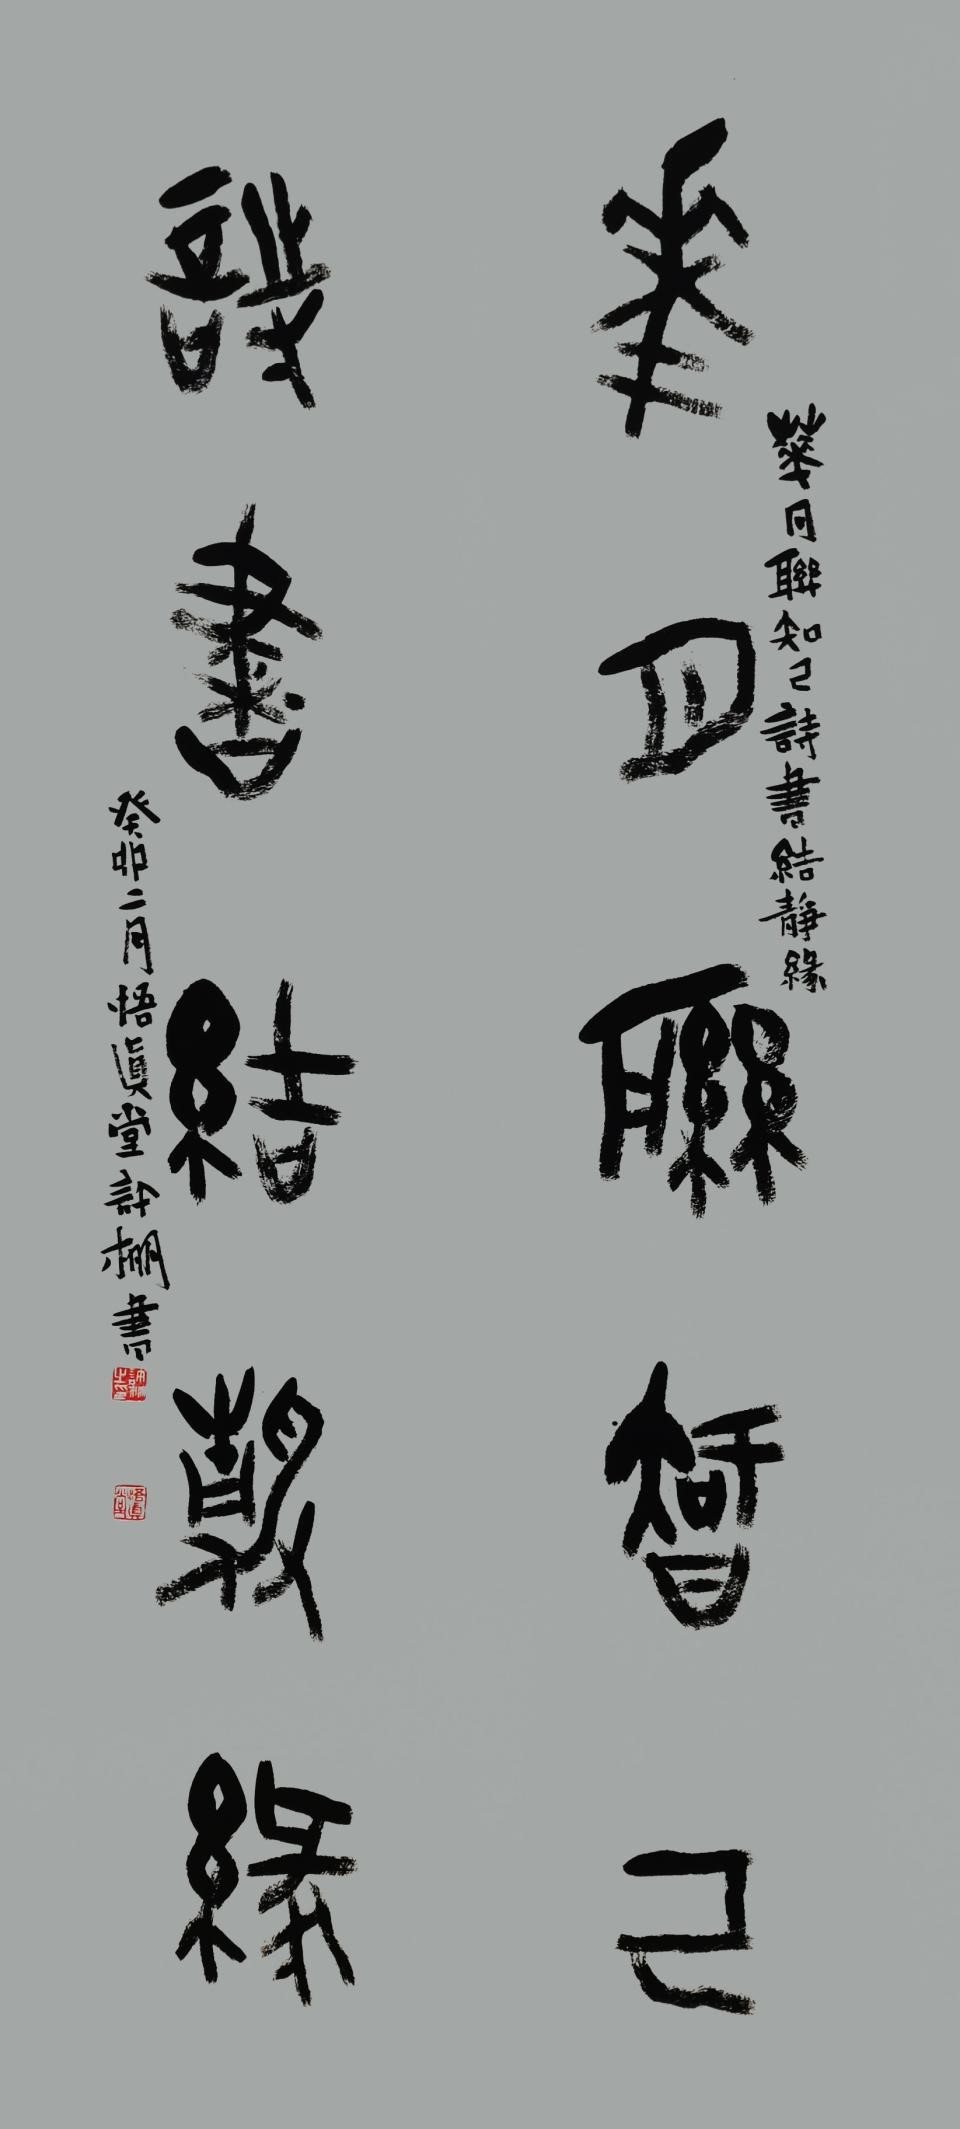 華月聯智己
華月聯知己詩書結靜緣
詩書結靜緣
癸卯二月悟真堂許棚書